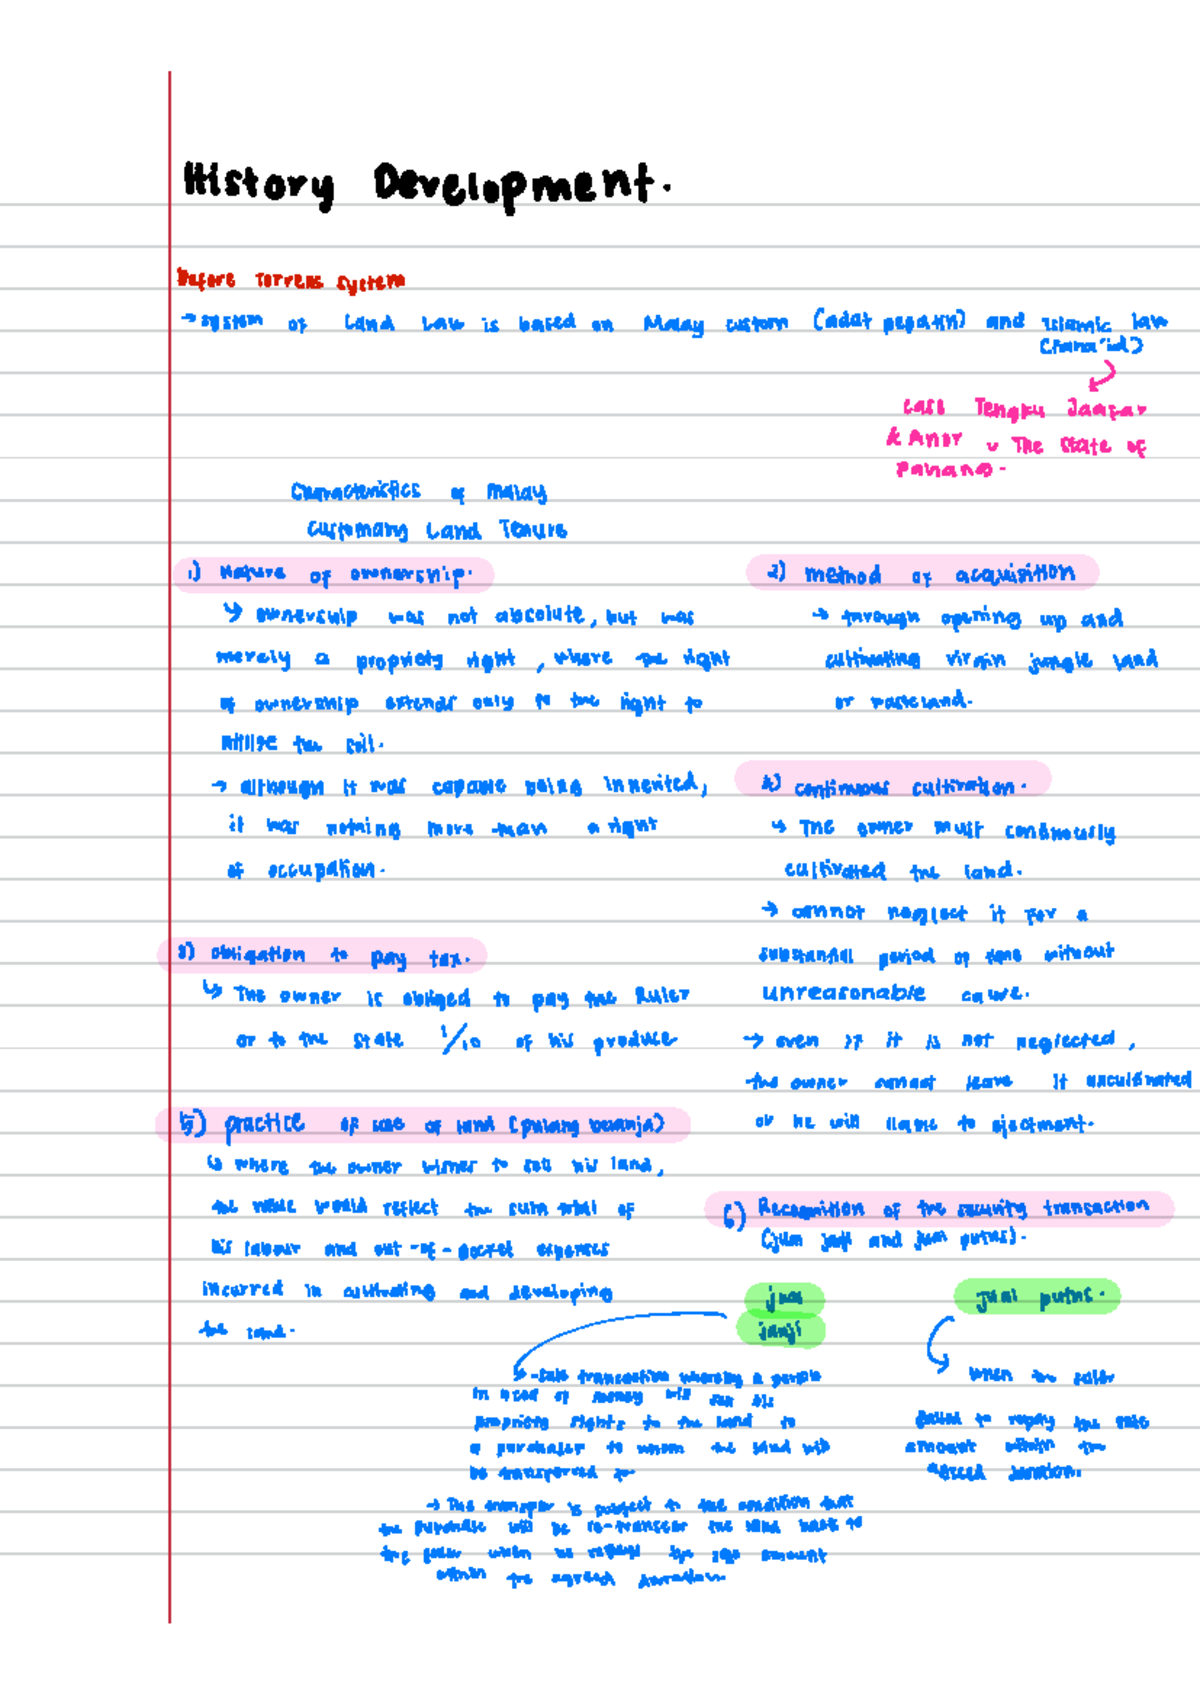 History Development.
Before Torrens System
→ system of Land Law is based on Malay custom (adat pepatih) and Islamic law
case Tengku Jaafar
& Anor v The State of
Pahang.
Characteristics of Malay
Customary Land Tenure
1) Nature of ownership.
↳ ownership was not absolute, but was
merely a propriety right, where the right
of ownership extends only to the right to
utilise the soil.
→ although it was capable being inherited,
it was nothing more than a right
of occupation.
2) method of acquisition
→ through opening up and
cultivating virgin jungle land
or wasteland.
4) continuous cultivation.
↳ The owner must continously
cultivated the land.
→ cannot neglect it for a
substantial period of time without
unreasonable cause.
→ even if it is not neglected,
the owner cannot leave it uncultivated
or he will liable to ejectment.
3) obligation to pay tax.
↳ The owner is obliged to pay the Ruler
or to the State 1/10 of his produce
5) practice of sale of land (pulang belanja)
↳ where the owner wishes to sell his land,
the value would reflect the sum total of
his labour and out-of-pocket expenses
incurred in cultivating and developing
the land.
6) Recognition of the security transaction
(jual janji and jual putus).
jual
janji
→ -sale transaction whereby a person
in need of money will sell his
propriety rights to the land to
a purchaser to whom the land will
be transferred to
→ The transfer is subject to the condition that
the purchase will be re-transfer the land back to
the seller when he the amount
within the agreed duration.
jual putus.
when the seller
failed to repay the sale
amount within the
agreed duration.